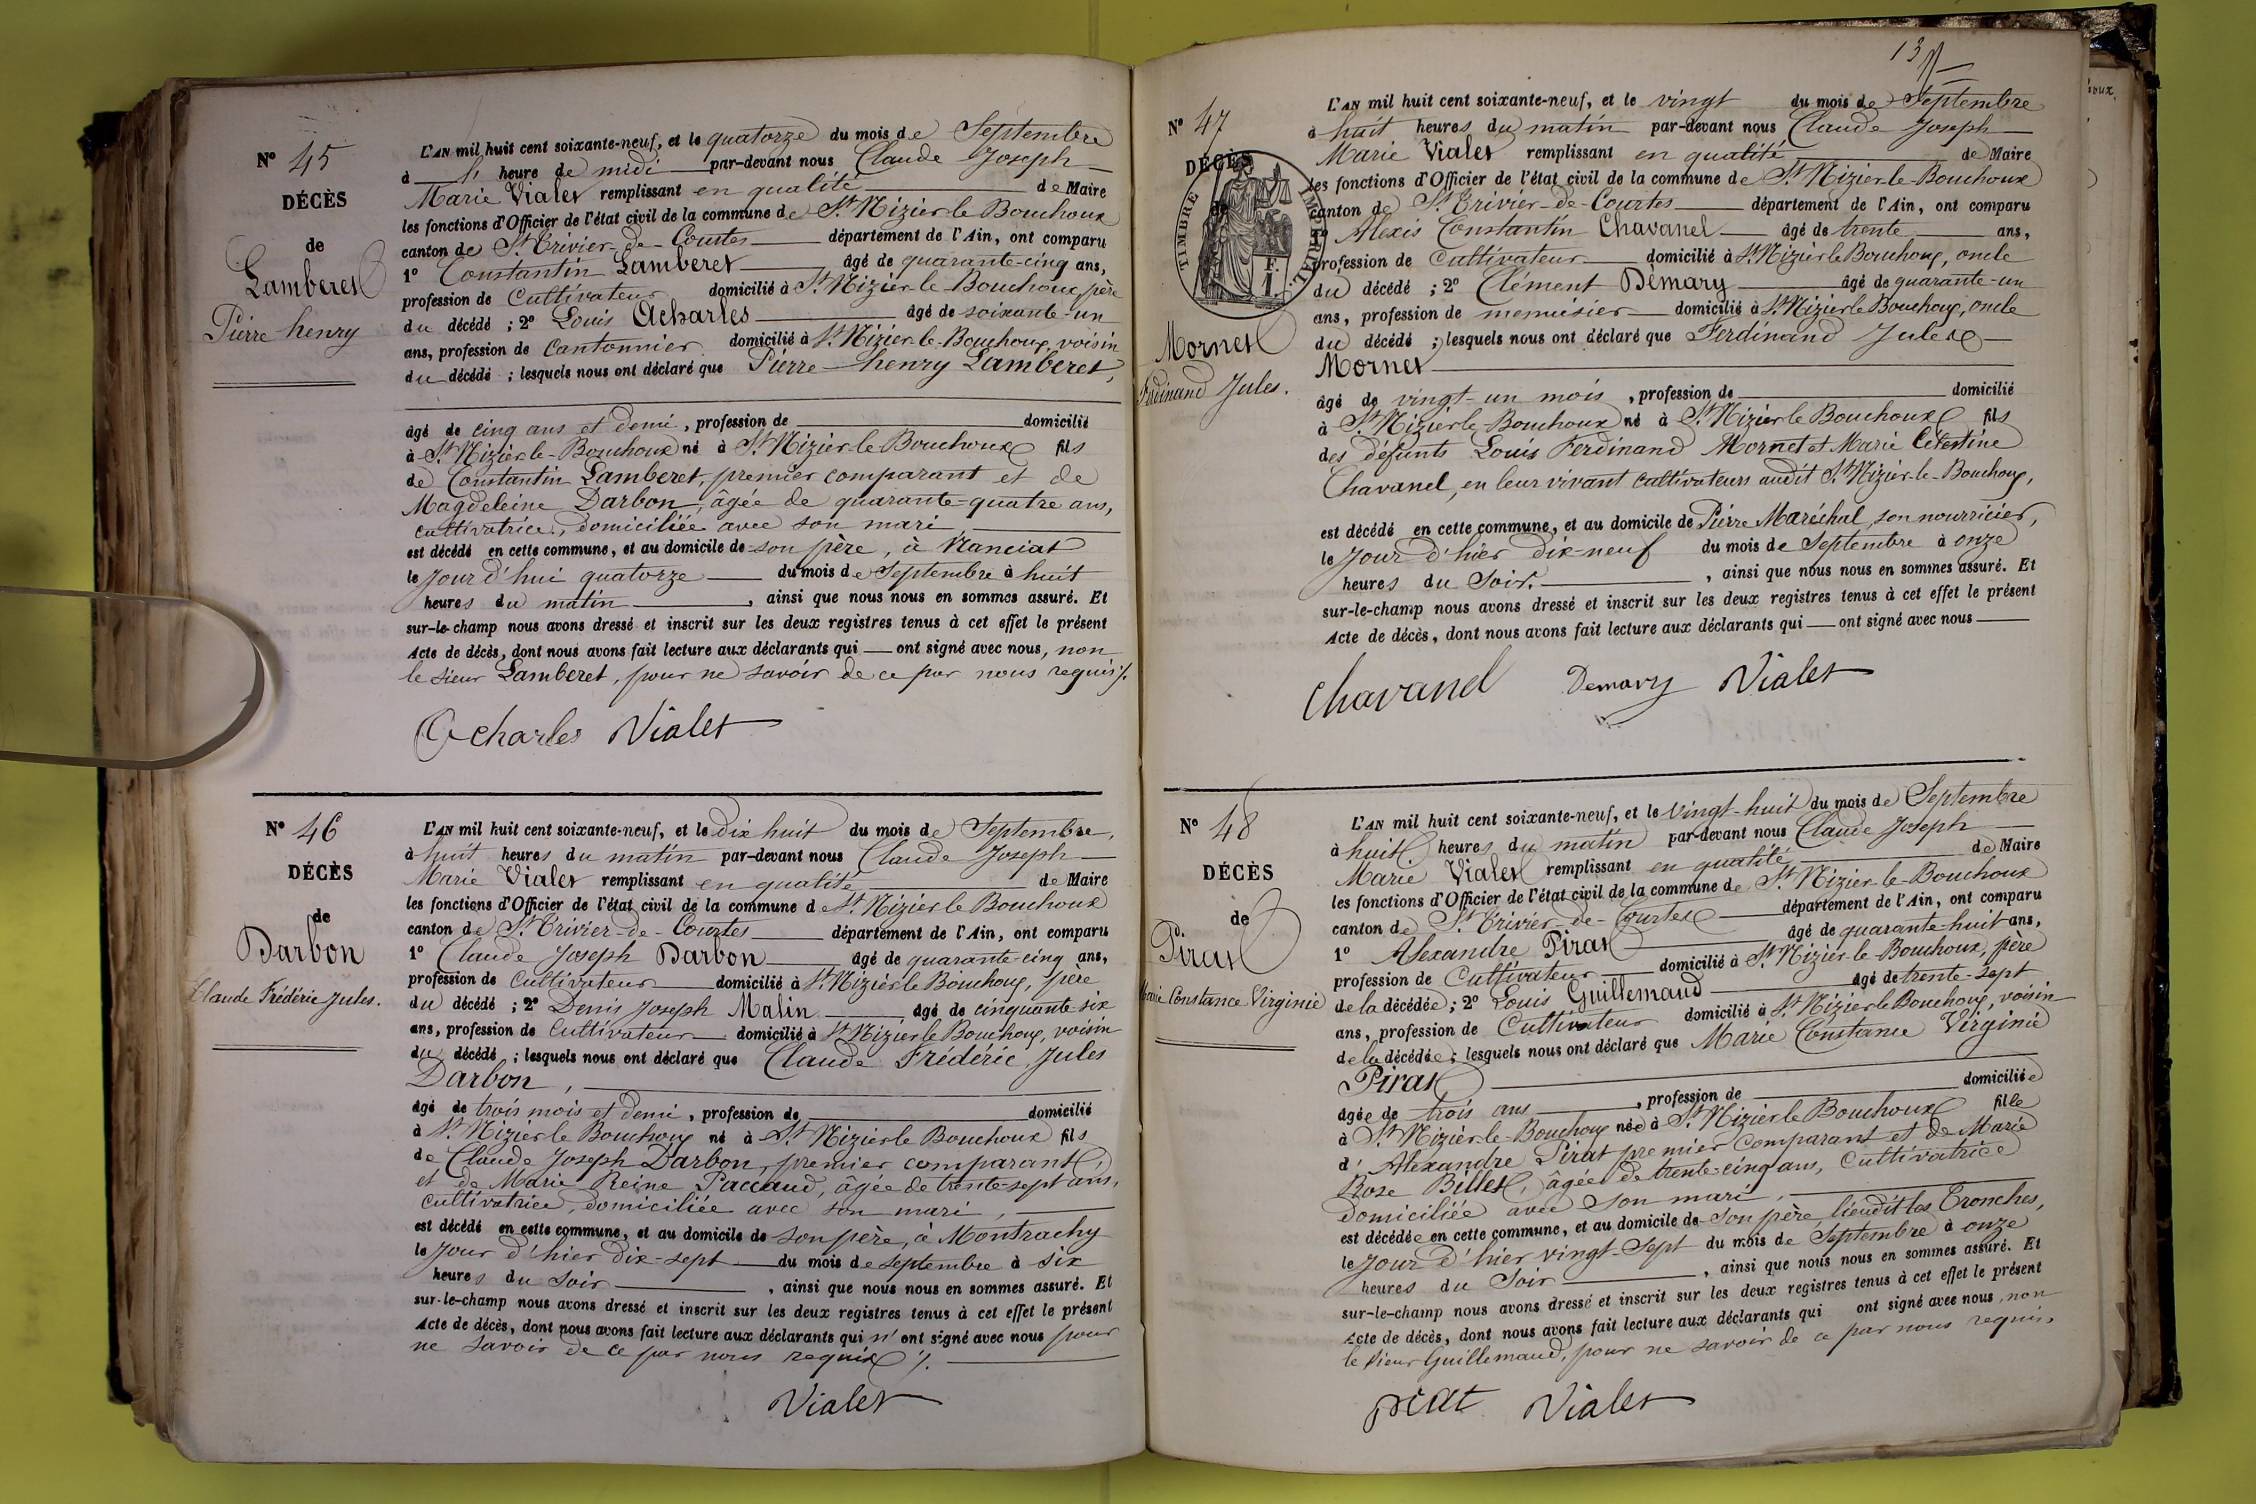 N° 45
DÉCÈS
de
Lamberet
Pierre henry
L'AN mil huit cent soixante-neuf, et le quatorze du mois de Septembre
à heure de midi par-devant nous Claude Joseph
Marie Vialet remplissant en qualité de Maire
les fonctions d'Officier de l'état civil de la commune de St Nizier-le-Bouchoux
canton de St Trivier-de-Courtes département de l'Ain, ont comparu
1° Constantin Lamberet âgé de quarante-cinq ans,
profession de Cultivateur domicilié à St Nizier-le-Bouchoux, père
du décédé ; 2° Louis Acharles âgé de soixante-un
ans, profession de Cantonnier domicilié à St Nizier-le-Bouchoux, voisin
du décédé ; lesquels nous ont déclaré que Pierre henry Lamberet,
âgé de cinq ans et demi, profession de domicilié
à St Nizier-le-Bouchoux né à St Nizier-le-Bouchoux fils
de Constantin Lamberet, premier comparant et de
Magdeleine Darbon, âgée de quarante-quatre ans,
cultivatrice, domiciliée avec son mari,
est décédé en cette commune, et au domicile de son père, à Nanciat
le jour d'hui quatorze du mois de Septembre à huit
heures du matin, ainsi que nous nous en sommes assuré. Et
sur-le-champ nous avons dressé et inscrit sur les deux registres tenus à cet effet le présent
Acte de décès, dont nous avons fait lecture aux déclarants qui ont signé avec nous, non
le sieur Lamberet, pour ne savoir de ce par nous requis ./.
Acharles Vialet
N° 46
DÉCÈS
de
Darbon
Claude Frédéric Jules.
L'AN mil huit cent soixante-neuf, et le dix huit du mois de Septembre,
à huit heures du matin par-devant nous Claude Joseph
Marie Vialet remplissant en qualité de Maire
les fonctions d'Officier de l'état civil de la commune de St Nizier-le-Bouchoux
canton de St Trivier-de-Courtes département de l'Ain, ont comparu
1° Claude Joseph Darbon âgé de quarante-cinq ans,
profession de Cultivateur domicilié à St Nizier-le-Bouchoux, père
du décédé ; 2° Denis Joseph Malin âgé de cinquante six
ans, profession de Cultivateur domicilié à St Nizier-le-Bouchoux, voisin
du décédé ; lesquels nous ont déclaré que Claude Frédéric Jules
Darbon,
âgé de trois mois et demi, profession de domicilié
à St Nizier-le-Bouchoux né à St Nizier-le-Bouchoux fils
de Claude Joseph Darbon, premier comparant,
et de Marie Reine Paccaud, âgée de trente-sept ans,
cultivatrice, domiciliée avec son mari,
est décédé en cette commune, et au domicile de son père, à Montrachy
le jour d'hier dix-sept du mois de septembre à six
heures du soir, ainsi que nous nous en sommes assuré. Et
sur-le-champ nous avons dressé et inscrit sur les deux registres tenus à cet effet le présent
Acte de décès, dont nous avons fait lecture aux déclarants qui n'ont signé avec nous pour
ne savoir de ce par nous requis ./.
Vialet
N° 47
DÉCÈS
de
TIMBRE IMPÉRIAL
Mornet
Ferdinand Jules.
L'AN mil huit cent soixante-neuf, et le vingt du mois de Septembre
à huit heures du matin par-devant nous Claude Joseph
Marie Vialet remplissant en qualité de Maire
les fonctions d'Officier de l'état civil de la commune de St Nizier-le-Bouchoux
canton de St Trivier-de-Courtes département de l'Ain, ont comparu
1° Alexis Constantin Chavanel âgé de trente ans,
profession de Cultivateur domicilié à St Nizier le Bouchoux, oncle
du décédé ; 2° Clément Démary âgé de quarante-un
ans, profession de menuisier domicilié à St Nizier le Bouchoux, oncle
du décédé ; lesquels nous ont déclaré que Ferdinand Jules
Mornet
âgé de vingt-un mois, profession de domicilié
à St Nizier le Bouchoux né à St Nizier le Bouchoux fils
des défunts Louis Ferdinand Mornet et Marie Célestine
Chavanel, en leur vivant cultivateurs audit St Nizier-le-Bouchoux,
est décédé en cette commune, et au domicile de Pierre Maréchal, son nourricier,
le jour d'hier dix-neuf du mois de Septembre à onze
heures du Soir., ainsi que nous nous en sommes assuré. Et
sur-le-champ nous avons dressé et inscrit sur les deux registres tenus à cet effet le présent
Acte de décès, dont nous avons fait lecture aux déclarants qui ont signé avec nous
Chavanel Demary Vialet
N° 48
DÉCÈS
de
Pirat
Marie Constance Virginie
L'AN mil huit cent soixante-neuf, et le vingt-huit du mois de Septembre
à huit heures du matin par-devant nous Claude Joseph
Marie Vialet remplissant en qualité de Maire
les fonctions d'Officier de l'état civil de la commune de St Nizier-le-Bouchoux
canton de St Trivier-de-Courtes département de l'Ain, ont comparu
1° Alexandre Pirat âgé de quarante-huit ans,
profession de Cultivateur domicilié à St Nizier-le-Bouchoux, père
de la décédée ; 2° Louis Guillemaud âgé de trente-sept
ans, profession de Cultivateur domicilié à St Nizier le Bouchoux, voisin
de la décédée ; lesquels nous ont déclaré que Marie Constance Virginie
Pirat
âgée de trois ans, profession de domiciliée
à St Nizier-le-Bouchoux née à St Nizier le Bouchoux fille
d'Alexandre Pirat premier comparant et de Marie
Rose Billet, âgée de trente-cinq ans, cultivatrice
domiciliée avec son mari,
est décédée en cette commune, et au domicile de son père, lieudit les Tronches,
le jour d'hier vingt-Sept du mois de Septembre à onze
heures du Soir, ainsi que nous nous en sommes assuré. Et
sur-le-champ nous avons dressé et inscrit sur les deux registres tenus à cet effet le présent
Acte de décès, dont nous avons fait lecture aux déclarants qui ont signé avec nous, non
le sieur Guillemaud, pour ne savoir de ce par nous requis,
pirat Vialet